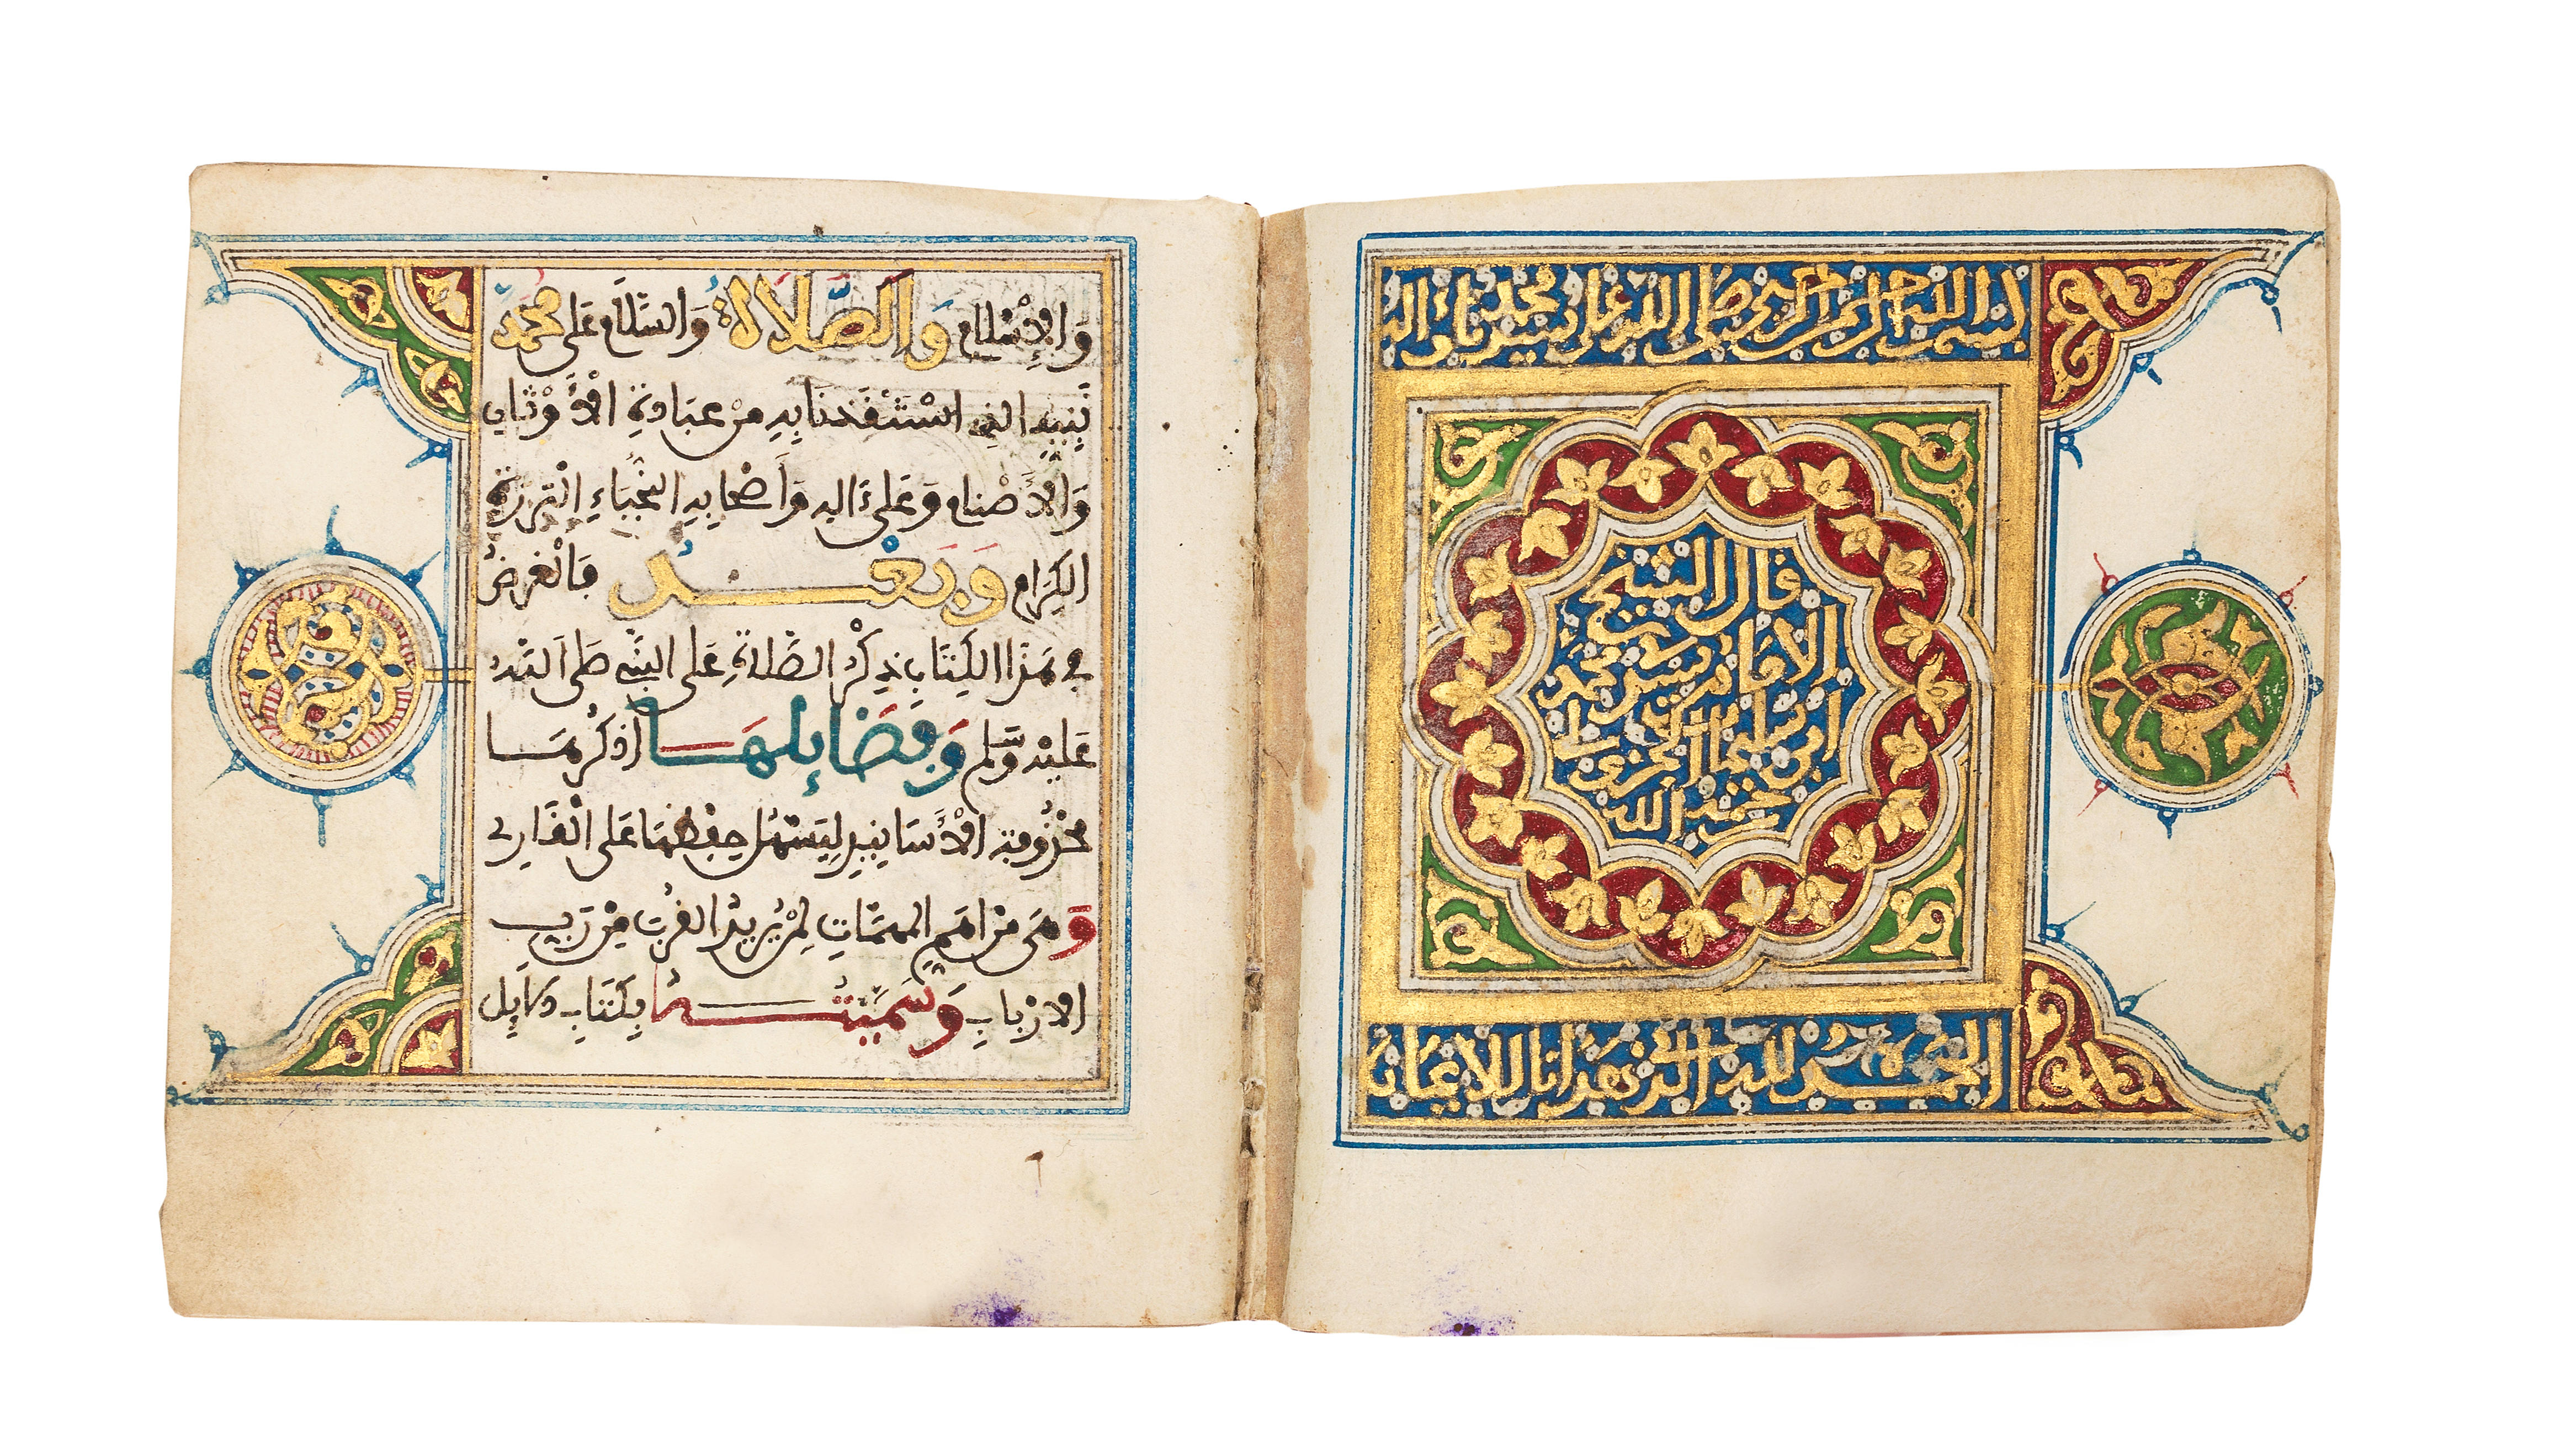 بسم الله الرحمن الرحيم صلى الله على سيدنا محمد
قال الشيخ
الامام سيدي محمد
ابن سليمان الجزولي
رحمه الله
الحمد لله الذي هدانا للايمان
وَالإِسْلَامِ وَالصَّلَاةُ وَالسَّلَامُ عَلَى مُحَمَّدٍ
نَبِيِّهِ الذِي اسْتَنْقَذَنَا بِهِ مِنْ عِبَادَةِ الْأَوْثَانِ
وَالْأَصْنَامِ وَعَلَى ءَالِهِ وَأَصْحَابِهِ النُّجَبَاءِ الْبَرَرَةِ
الْكِرَامِ وَبَعْدُ فَالْغَرَضُ
فِي هَذَا الْكِتَابِ ذِكْرُ الصَّلَاةِ عَلَى النَّبِيِّ صَلَّى اللَّهُ
عَلَيْهِ وَسَلَّمَ وَفَضَائِلِهَا أَذْكُرُهَا
مَحْذُوفَةَ الْأَسَانِيدِ لِيَسْهُلَ حِفْظُهَا عَلَى الْقَارِي
وَهِيَ مِنْ أَهَمِّ الْمُهِمَّاتِ لِمَنْ يُرِيدُ الْقُرْبَ مِنْ رَبِّ
الْأَرْبَابِ وَسَمَّيْتُهُ بِكِتَابِ دَلَائِلِ